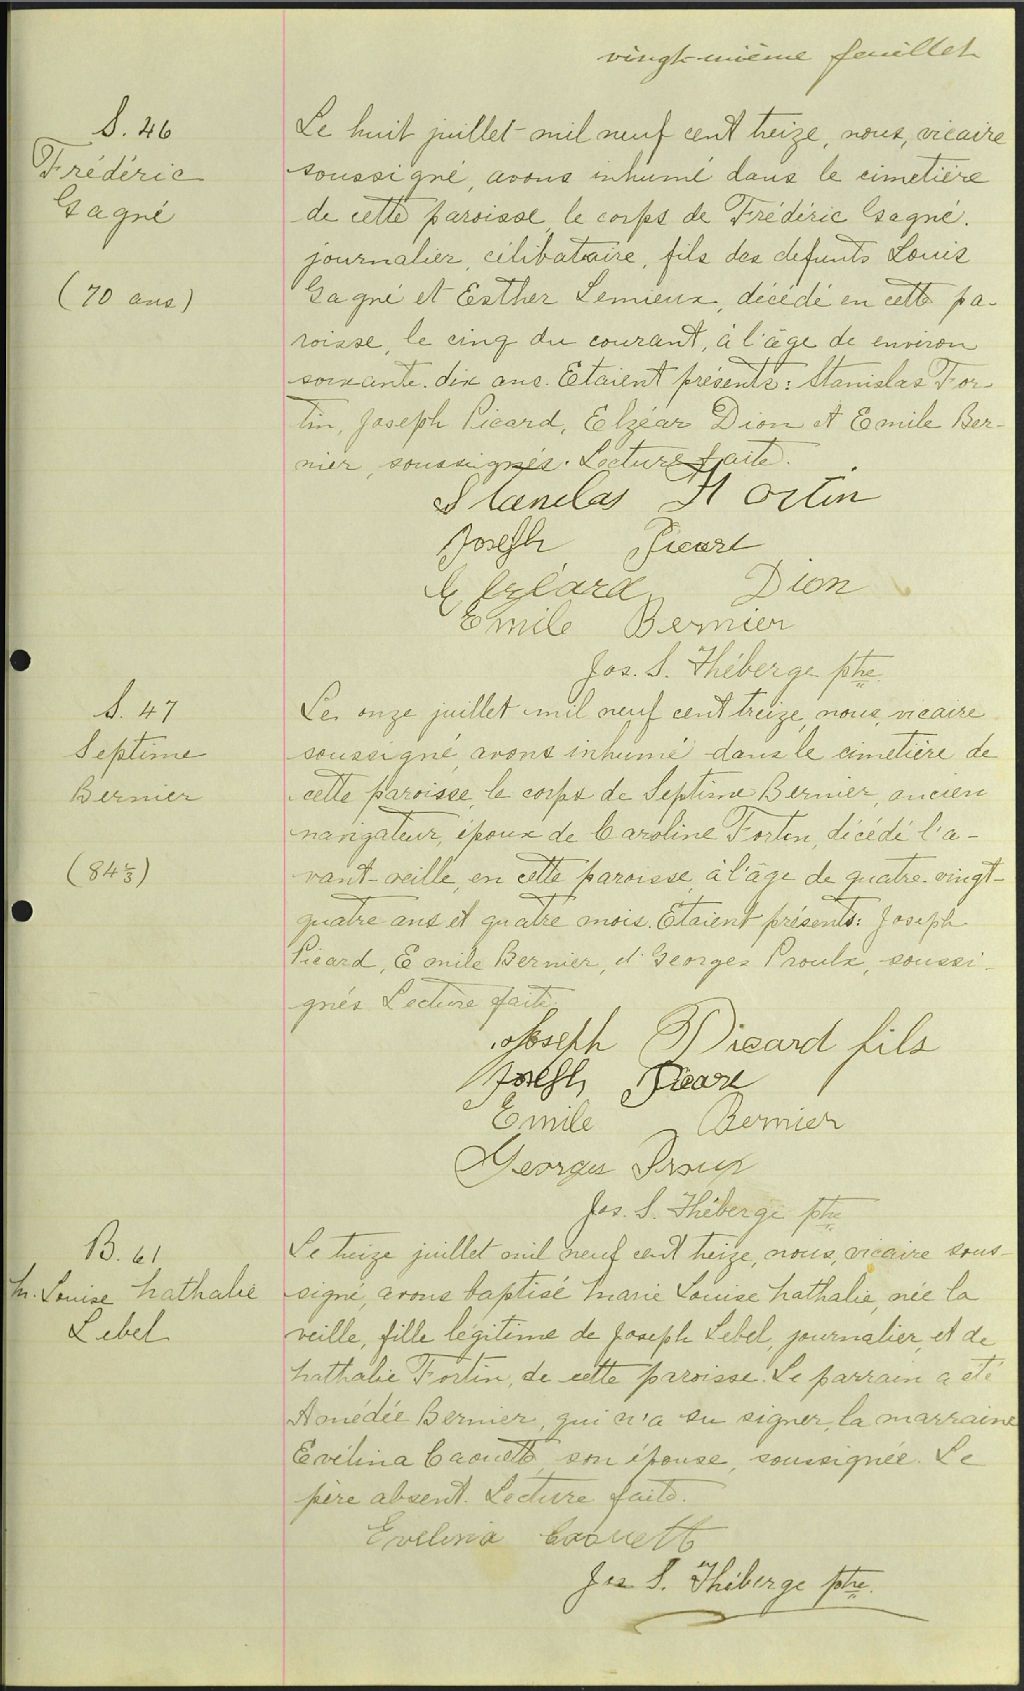 vingt-unième feuillet
S. 46
Frédéric
Gagné
(70 ans)
Le huit juillet mil neuf cent treize, nous, vicaire
soussigné, avons inhumé dans le cimetière
de cette paroisse, le corps de Frédéric Gagné.
journalier, célibataire, fils des défunts Louis
Gagné et Esther Lemieux, décédé en cette pa-
roisse, le cinq du courant, à l'âge de environ
soixante-dix ans. Etaient présents: Stanislas For-
tin, Joseph Picard, Elzéar Dion et Emile Ber-
nier, soussignés. Lecture faite.
Stanilas Fortin
Joseph Picard
Elzéard Dion
Emile Bernier
Jos. S. Théberge ptre.
S. 47
Septime
Bernier
(84 1/3)
Le onze juillet mil neuf cent treize, nous, vicaire
soussigné, avons inhumé dans le cimetière de
cette paroisse, le corps de Septime Bernier, ancien
navigateur, époux de Caroline Fortin, décédé l'a-
vant-veille, en cette paroisse, à l'âge de quatre-vingt-
quatre ans et quatre mois. Etaient présents: Joseph
Picard, Emile Bernier, et Georges Proulx, soussi-
gnés. Lecture faite.
Joseph Picard fils
Joseph Picard
Emile Bernier
Georges Proux
Jos. S. Théberge ptre
B. 61
M. Louise Nathalie
Lebel
Le treize juillet mil neuf cent treize, nous, vicaire sous-
signé, avons baptisé Marie Louise Nathalie, née la
veille, fille légitime de Joseph Lebel, journalier, et de
Nathalie Fortin, de cette paroisse. Le parrain a été
Amédée Bernier, qui n'a su signer, la marraine
Evélina Caouette, son épouse, soussignée. Le
père absent. Lecture faite.
Evelina Caouette
Jos S. Théberge ptre.